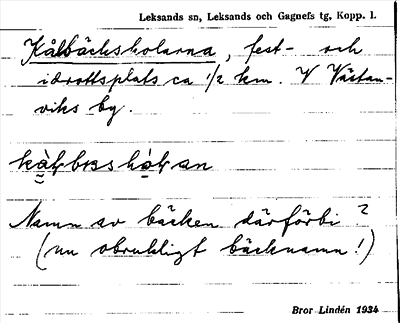 Leksands sn, Leksands och Gagnefs tg, Kopp. l.
Kålbäckskolarna, fest- och
idrottsplats ca 1/2 km. V Västan-
viks by.
Namn av bäcken därförbi?
(nu obrukligt bäcknamn!)
Bror Lindén 1934